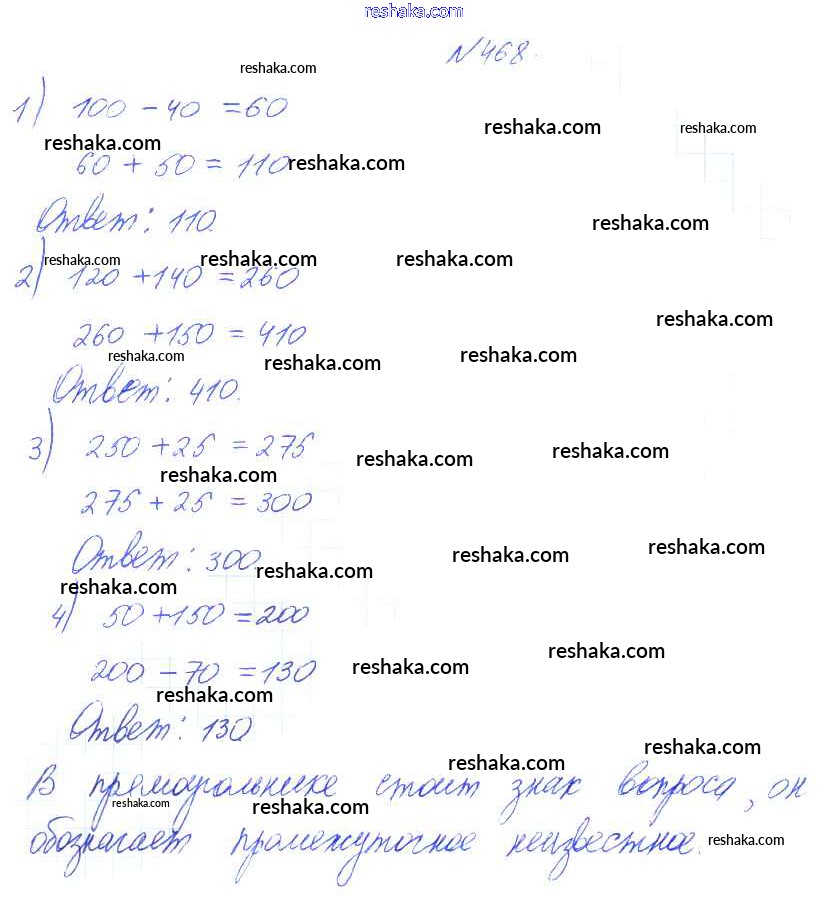 reshaka.com
№468.
reshaka.com
1) 100 - 40 = 60
reshaka.com reshaka.com
reshaka.com
60 + 50 = 110 reshaka.com
Ответ: 110.
reshaka.com
reshaka.com reshaka.com reshaka.com
2) 120 + 140 = 260
reshaka.com
260 + 150 = 410
reshaka.com reshaka.com reshaka.com
Ответ: 410.
3) 250 + 25 = 275
reshaka.com reshaka.com
reshaka.com
275 + 25 = 300
Ответ: 300.
reshaka.com reshaka.com reshaka.com
reshaka.com
4) 50 + 150 = 200
reshaka.com
200 - 70 = 130 reshaka.com
reshaka.com
Ответ: 130
reshaka.com reshaka.com
В прямоугольнике стоит знак вопроса, он
reshaka.com reshaka.com
обозначает промежуточное неизвестное.
reshaka.com